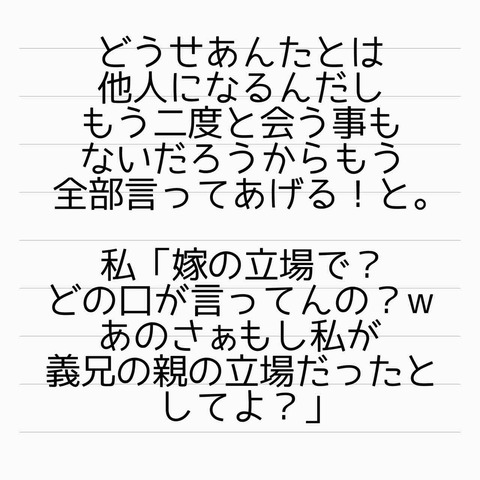 どうせあんたとは
他人になるんだし
もう二度と会う事も
ないだろうからもう
全部言ってあげる！と。
私「嫁の立場で？
どの口が言ってんの？w
あのさぁもし私が
義兄の親の立場だったと
してよ？」